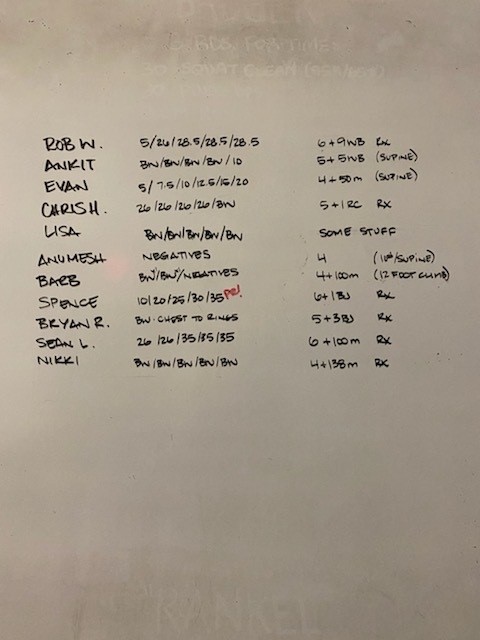 5 RDS FOR TIME:
ROB W. 5/26/28.5/28.5/28.5 6+9WB RX
ANKIT BW/BW/BW/BW/10 5+5WB (SUPINE)
EVAN 5/7.5/10/12.5/15/20 4+50m (SUPINE)
CHRIS H. 26/26/26/26/BW 5+1RC RX
LISA BW/BW/BW/BW/BW SOME STUFF
ANUMESH NEGATIVES 4 (10#/SUPINE)
BARB BW/BW/NEGATIVES 4+100m (12 FOOT CLIMB)
SPENCE 10/20/25/30/35 PR! 6+1BJ RX
BRYAN R. BW-CHEST TO RINGS 5+3BJ RX
SEAN L. 26/26/35/35/35 6+100m RX
NIKKI BW/BW/BW/BW/BW 4+138m RX